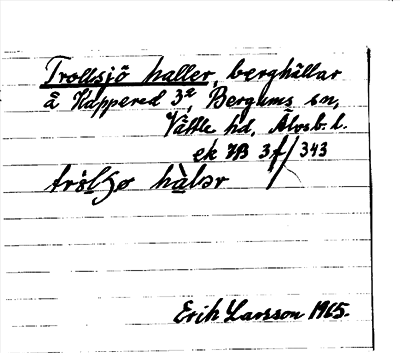 Trollsjö haller, berghällar
å Häppered 3ª, Bergums sn,
Vättle hd, Älvsb. l.
ek 7B 3f/343
tròlʃø hàlər
Erik Larsson 1965.